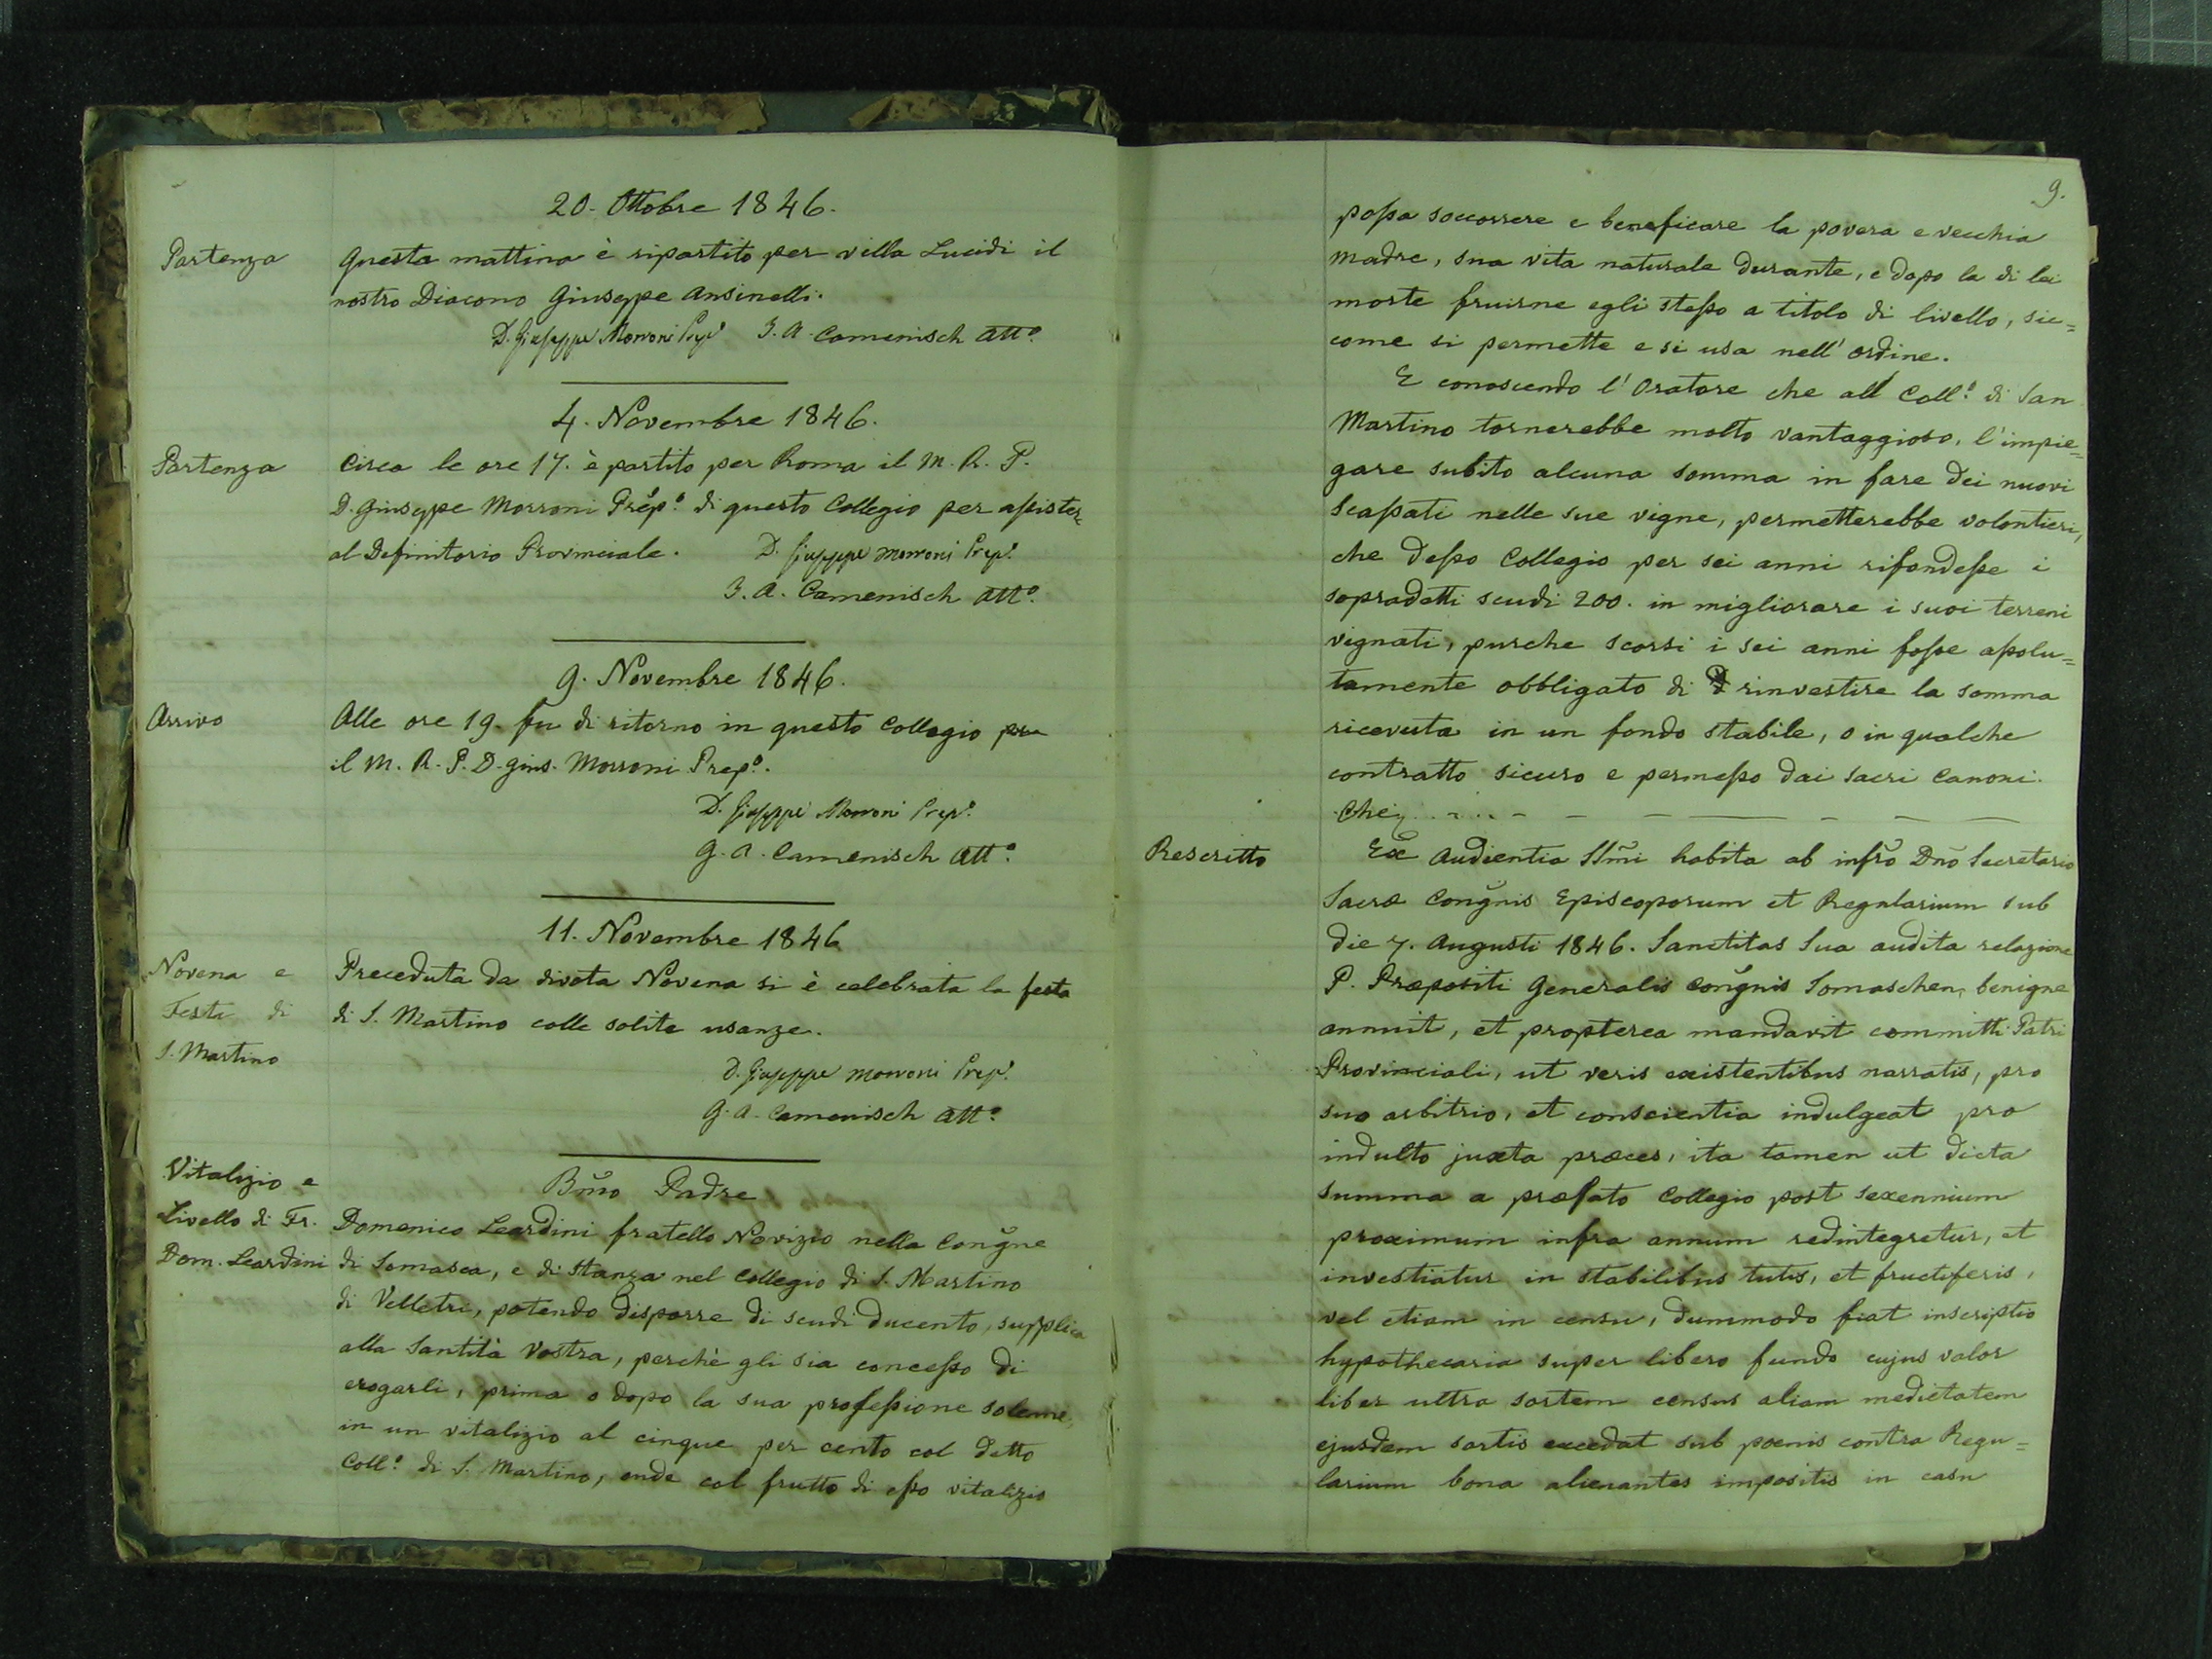 20. Ottobre 1846.
Partenza
Questa mattina è ripartito per villa Lucidi il
nostro Diacono Giuseppe Ansinelli.
D. Giuseppe Morroni Prep.º G. A. Camenisch Att.º
4. Novembre 1846.
Partenza
Circa le ore 17. è partito per Roma il M. R. P.
D. Giuseppe Morroni Prep.º di questo Collegio per aſsister
al Definitorio Provinciale. D. Giuseppe Morroni Prep.º
G. A. Camenisch Att.º
9. Novembre 1846.
Arrivo
Alle ore 19. fu di ritorno in questo Collegio
il M. R. P. D. Gius. Morroni Prep.º.
D. Giuseppe Morroni Prep.º
G. A. Camenisch Att.º
11. Novembre 1846
Novena e
Festa di
S. Martino
Preceduta da divota Novena si è celebrata la festa
di S. Martino colle solite usanze.
D. Giuseppe Morroni Prep.º
G. A. Camenisch Att.º
Vitalizio e
Livello di Fr.
Dom. Leardini
Bm̃o Padre
Domenico Leardini fratello Novizio nella Conḡne
di Somasca, e di stanza nel Collegio di S. Martino
di Velletri, potendo disporre di scudi ducento, supplica
alla Santità Vostra, perchè gli sia conceſso di
erogarli, prima o dopo la sua profeſsione solenne,
in un vitalizio al cinque per cento col detto
Coll.º di S. Martino, onde col frutto di eſso vitalizio
9.
poſsa soccorrere e beneficare la povera e vecchia
madre, sua vita naturale durante, e dopo la di lei
morte fruirne egli steſso a titolo di livello, sic=
come si permette e si usa nell' ordine.
E conoscendo l' Oratore che all Coll.º di San
Martino tornerebbe molto vantaggioso, l' impie=
gare subito alcuna somma in fare dei nuovi
Scaſsati nelle sue vigne, permetterebbe volontieri,
che deſso Collegio per sei anni rifondeſse i
sopradetti scudi 200. in migliorare i suoi terreni
vignati, purche scorsi i sei anni foſse aſsolu=
tamente obbligato di rinvestire la somma
ricevuta in un fondo stabile, o in qualche
contratto sicuro e permeſso dai sacri Canoni.
Che
Rescritto
Ex Audientia SSm̃i habita ab infr̃o Dño Secretario
Sacræ Conḡnis Episcoporum et Regularium sub
die 7. Augusti 1846. Sanctitas Sua audita relazione
P. Præpositi Generalis Conḡnis Somaschen, benigne
annuit, et propterea mandavit committi Patri
Provinciali, ut veris existentibus narratis, pro
suo arbitrio, et conscientia indulgeat pro
indulto juxta præces, ita tamen ut dicta
summa a præfato Collegio post sexennium
proximum infra annum redintegretur, et
investiatur in stabilibus tutis, et fructiferis,
vel etiam in censu, dummodo fiat inscriptio
hypothecaria super libero fundo cujus valor
liber ultra sortem census aliam medietatem
ejusdem sortis excedat sub pœnis contra Regu=
larium bona alienantes impositis in casu